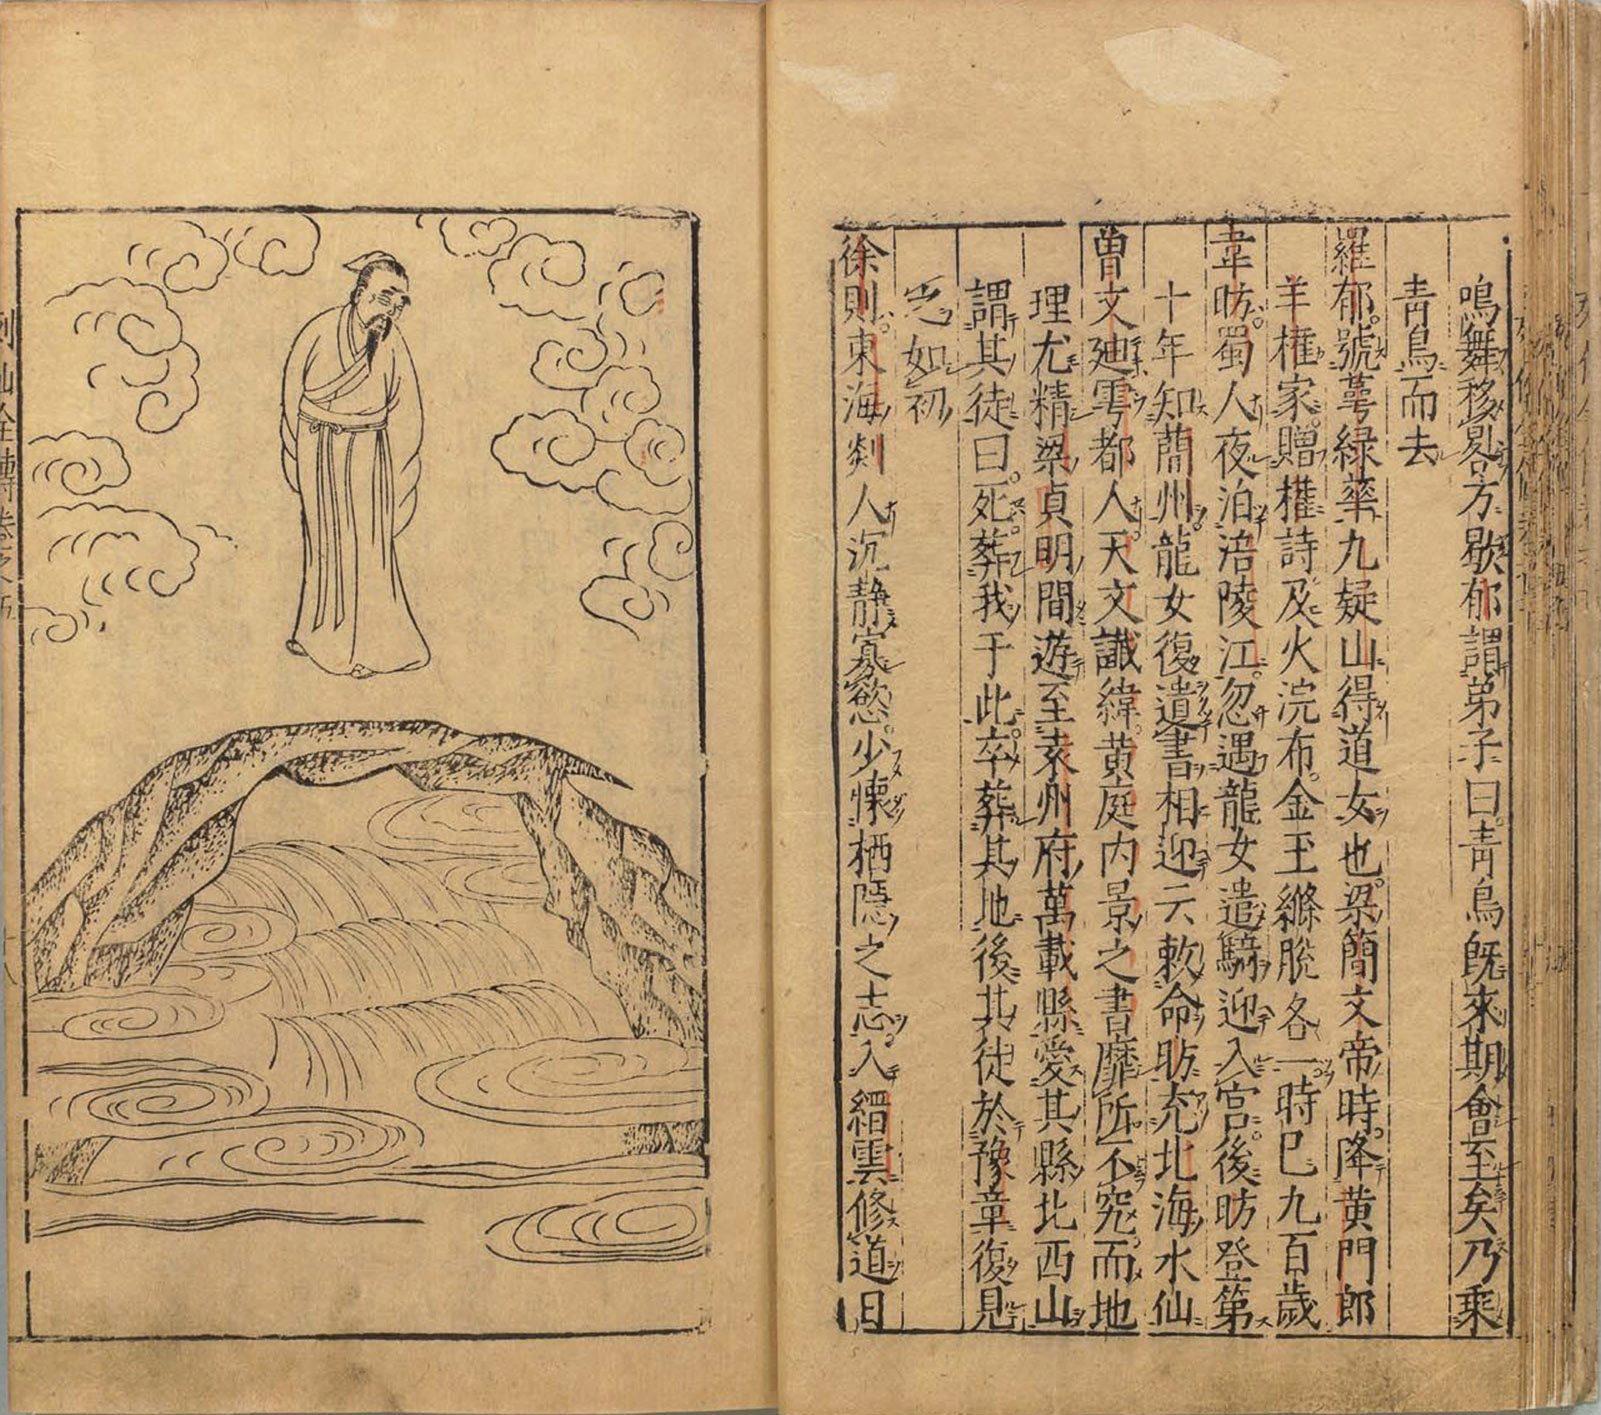 鳴舞移晷方歇郁謂弟子曰青鳥既來期會至矣乃乘
青鳥而去
羅郁號萼緑華九疑山得道女也梁簡文帝時降黄門郎
羊權家贈權詩及火浣布金玉縧脫各一時已九百歲
韋昉蜀人夜泊涪陵江忽遇龍女遣騎迎入宫後昉登第
十年知蕳州龍女復遣書相迎云敕命昉充北海水仙
曾文廸雩都人天文讖緯黄庭内景之書靡所不究而地
理尤精梁貞明間遊至袁州府萬載縣愛其縣北西山
謂其徒曰死葬我于此卒葬其地後其徒於豫章復見
之如初
徐則東海剡人沉静寡慾少懐栖隱之志入縉雲修道日
列仙全傳卷之五
十八